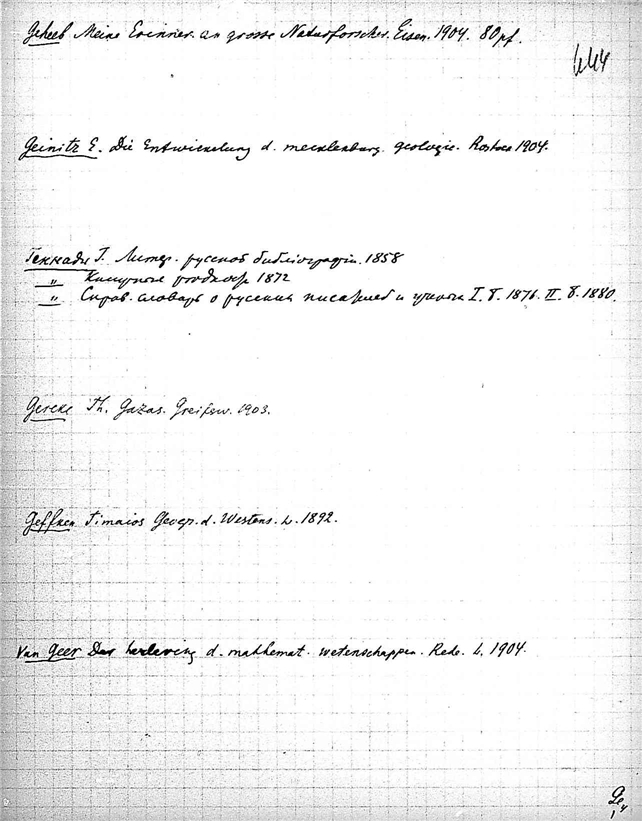 Geheeb Meine Erinner. an grosse Naturforscher. Eisen. 1904. 80 pf.
644
Geinitz E. Die Entwickelung d. mecklenburg. geologie. Rostock 1904.
Геннади Г. Литер. русской библіографіи. 1858
" Книжные 1872
" Справ. словарь о русских писателей и ученых I. т. 1876. II. т. 1880.
Gercke Th. Gazas. Greifsw. 1903.
Geffken Timaios Geogr. d. Westens. L. 1892.
Van Geer Der herleving d. mathemat. wetenschappen. Rede. L. 1904.
Ge